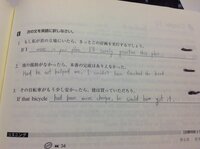 次の文を英語に訳しなさい。
1. もし私が君の立場にいたら、きっとこの計画を実行するでしょう。
If I were in your place, I'll surely practice this plan.
2. 彼の援助がなかったら、本番の完成はありえなかった。
Had he not helped me, I couldn't have finished the book.
3. その自転車がもう少し安かったら、彼は買っていただろう。
If that bicycle had been more cheap, he could have got it.
34